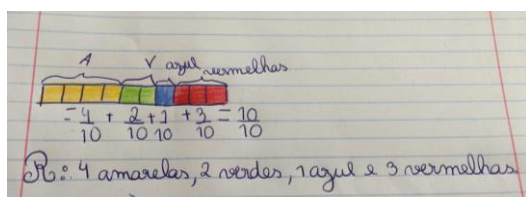 A V azul vermelhas
= 4/10 + 2/10 + 1/10 + 3/10 = 10/10
R: 4 amarelas, 2 verdes, 1 azul e 3 vermelhas